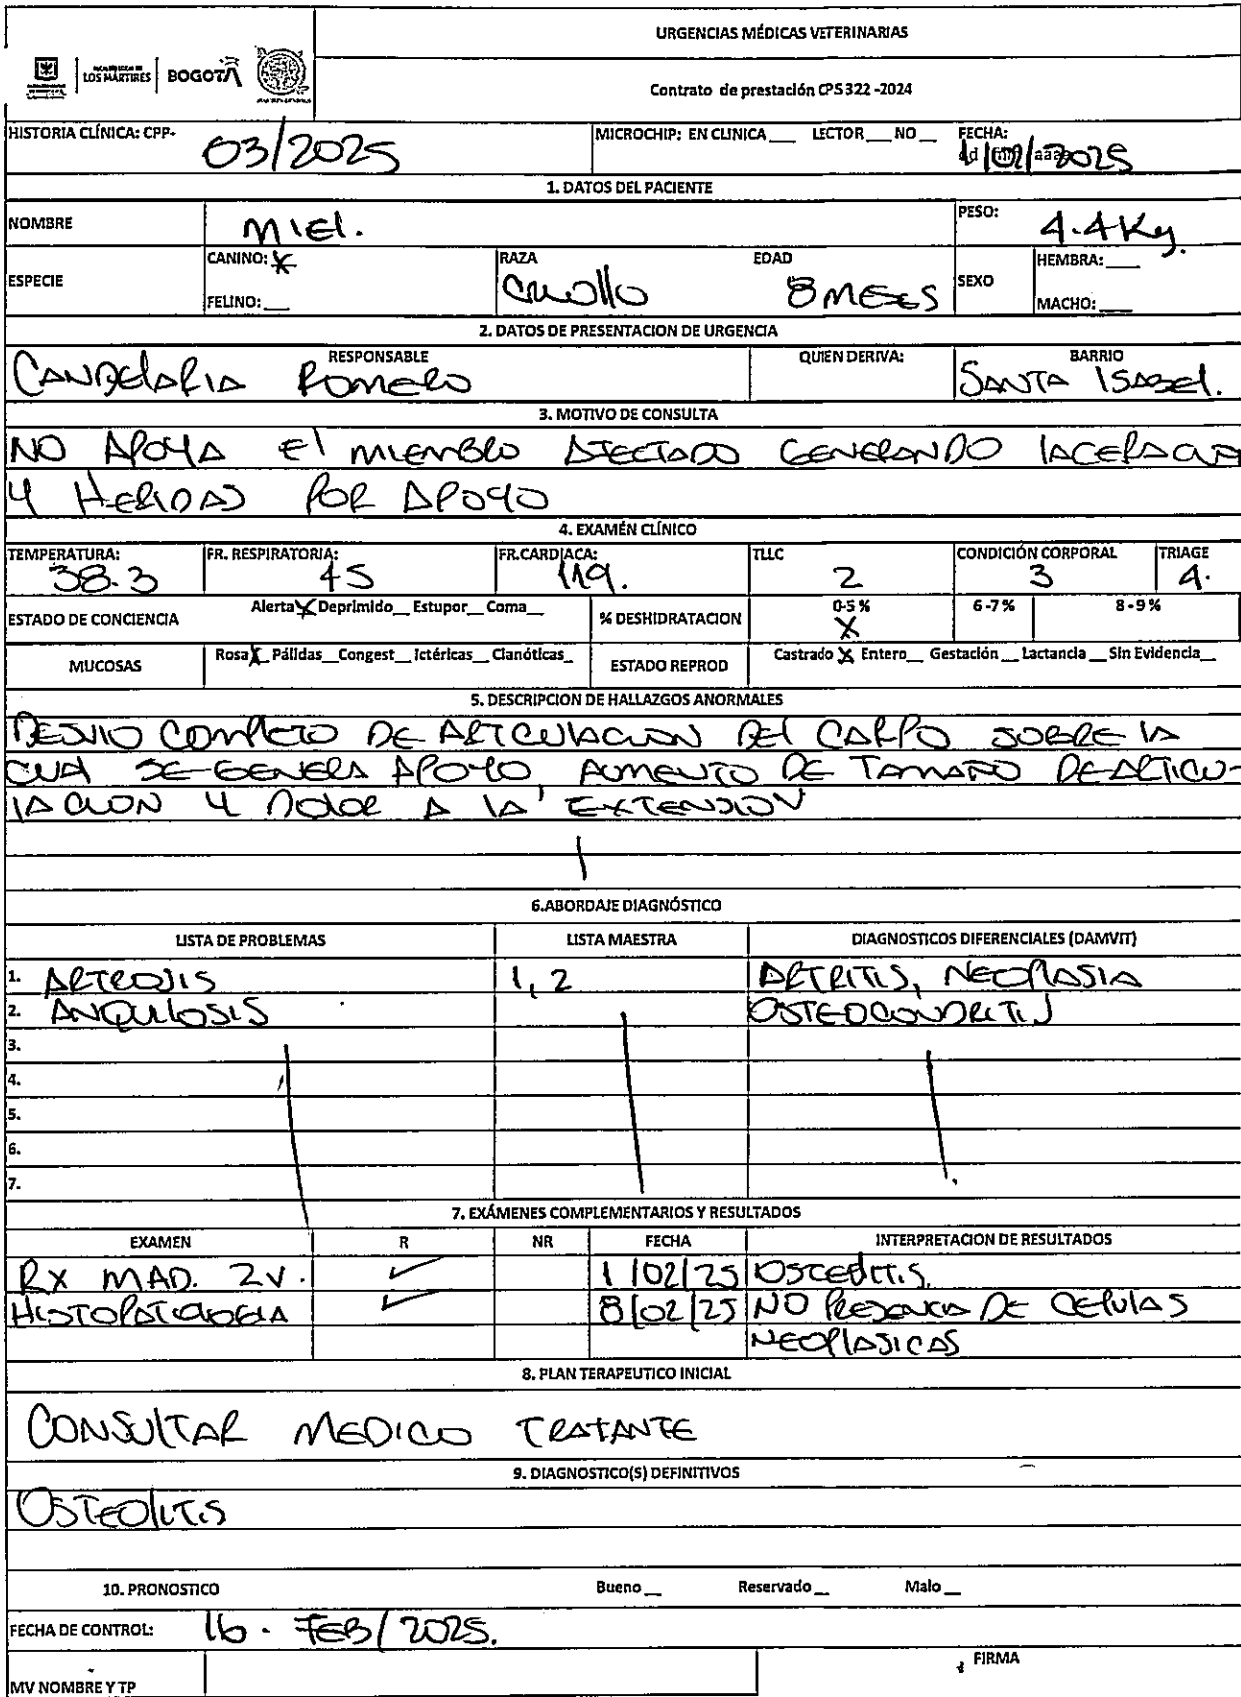 URGENCIAS MÉDICAS VETERINARIAS
LOS MÁRTIRES BOGOTÁ
Contrato de prestación CPS 322 -2024
HISTORIA CLÍNICA: CPP- 03/2025 MICROCHIP: EN CLINICA ___ LECTOR ___ NO __ FECHA: 1/02/2025
1. DATOS DEL PACIENTE
NOMBRE MIEl. PESO: 4.4 Kg.
ESPECIE CANINO: X RAZA CRIOllO EDAD 8 MESES SEXO HEMBRA: ___
FELINO: ___ MACHO: ___
2. DATOS DE PRESENTACION DE URGENCIA
RESPONSABLE QUIEN DERIVA: BARRIO
CANDELARIA ROMERO SANTA ISABEL.
3. MOTIVO DE CONSULTA
NO APOYA El MIEMBRO AFECTADO GENERANDO
Y HERIDAS POR APOYO
4. EXAMÉN CLÍNICO
TEMPERATURA: FR. RESPIRATORIA: FR.CARDIACA: TLLC CONDICIÓN CORPORAL TRIAGE
38.3 45 119. 2 3 4.
ESTADO DE CONCIENCIA Alerta X Deprimido__ Estupor__ Coma__ % DESHIDRATACION 0-5 % X 6 -7 % 8 - 9 %
MUCOSAS Rosa X Pálidas__ Congest__ Ictéricas__ Cianóticas_ ESTADO REPROD Castrado X Entero__ Gestación __ Lactancia __ Sin Evidencia__
5. DESCRIPCION DE HALLAZGOS ANORMALES
DESVIO COMPLETO DE ARTICULACION DEL CARPO SOBRE LA
CUAL SE GENERA APOYO, AUMENTO DE TAMAÑO DE ARTICU-
LACION Y DOLOR A LA EXTENSION
6.ABORDAJE DIAGNÓSTICO
LISTA DE PROBLEMAS LISTA MAESTRA DIAGNOSTICOS DIFERENCIALES (DAMVIT)
1. ARTROSIS 1, 2 ARTRITIS, NEOPLASIA
2. ANQUILOSIS OSTEOCONDRITIS
3.
4.
5.
6.
7.
7. EXÁMENES COMPLEMENTARIOS Y RESULTADOS
EXAMEN R NR FECHA INTERPRETACION DE RESULTADOS
RX MAD. 2V. ✓ 1/02/25
HISTOPATOLOGIA ✓ 8/02/25 NO PRESENCIA DE CELULAS
NEOPLASICAS
8. PLAN TERAPEUTICO INICIAL
CONSULTAR MEDICO TRATANTE
9. DIAGNOSTICO(S) DEFINITIVOS
OSTEOLITIS
10. PRONOSTICO Bueno __ Reservado __ Malo __
FECHA DE CONTROL: 16 - FEB/2025.
FIRMA
MV NOMBRE Y TP